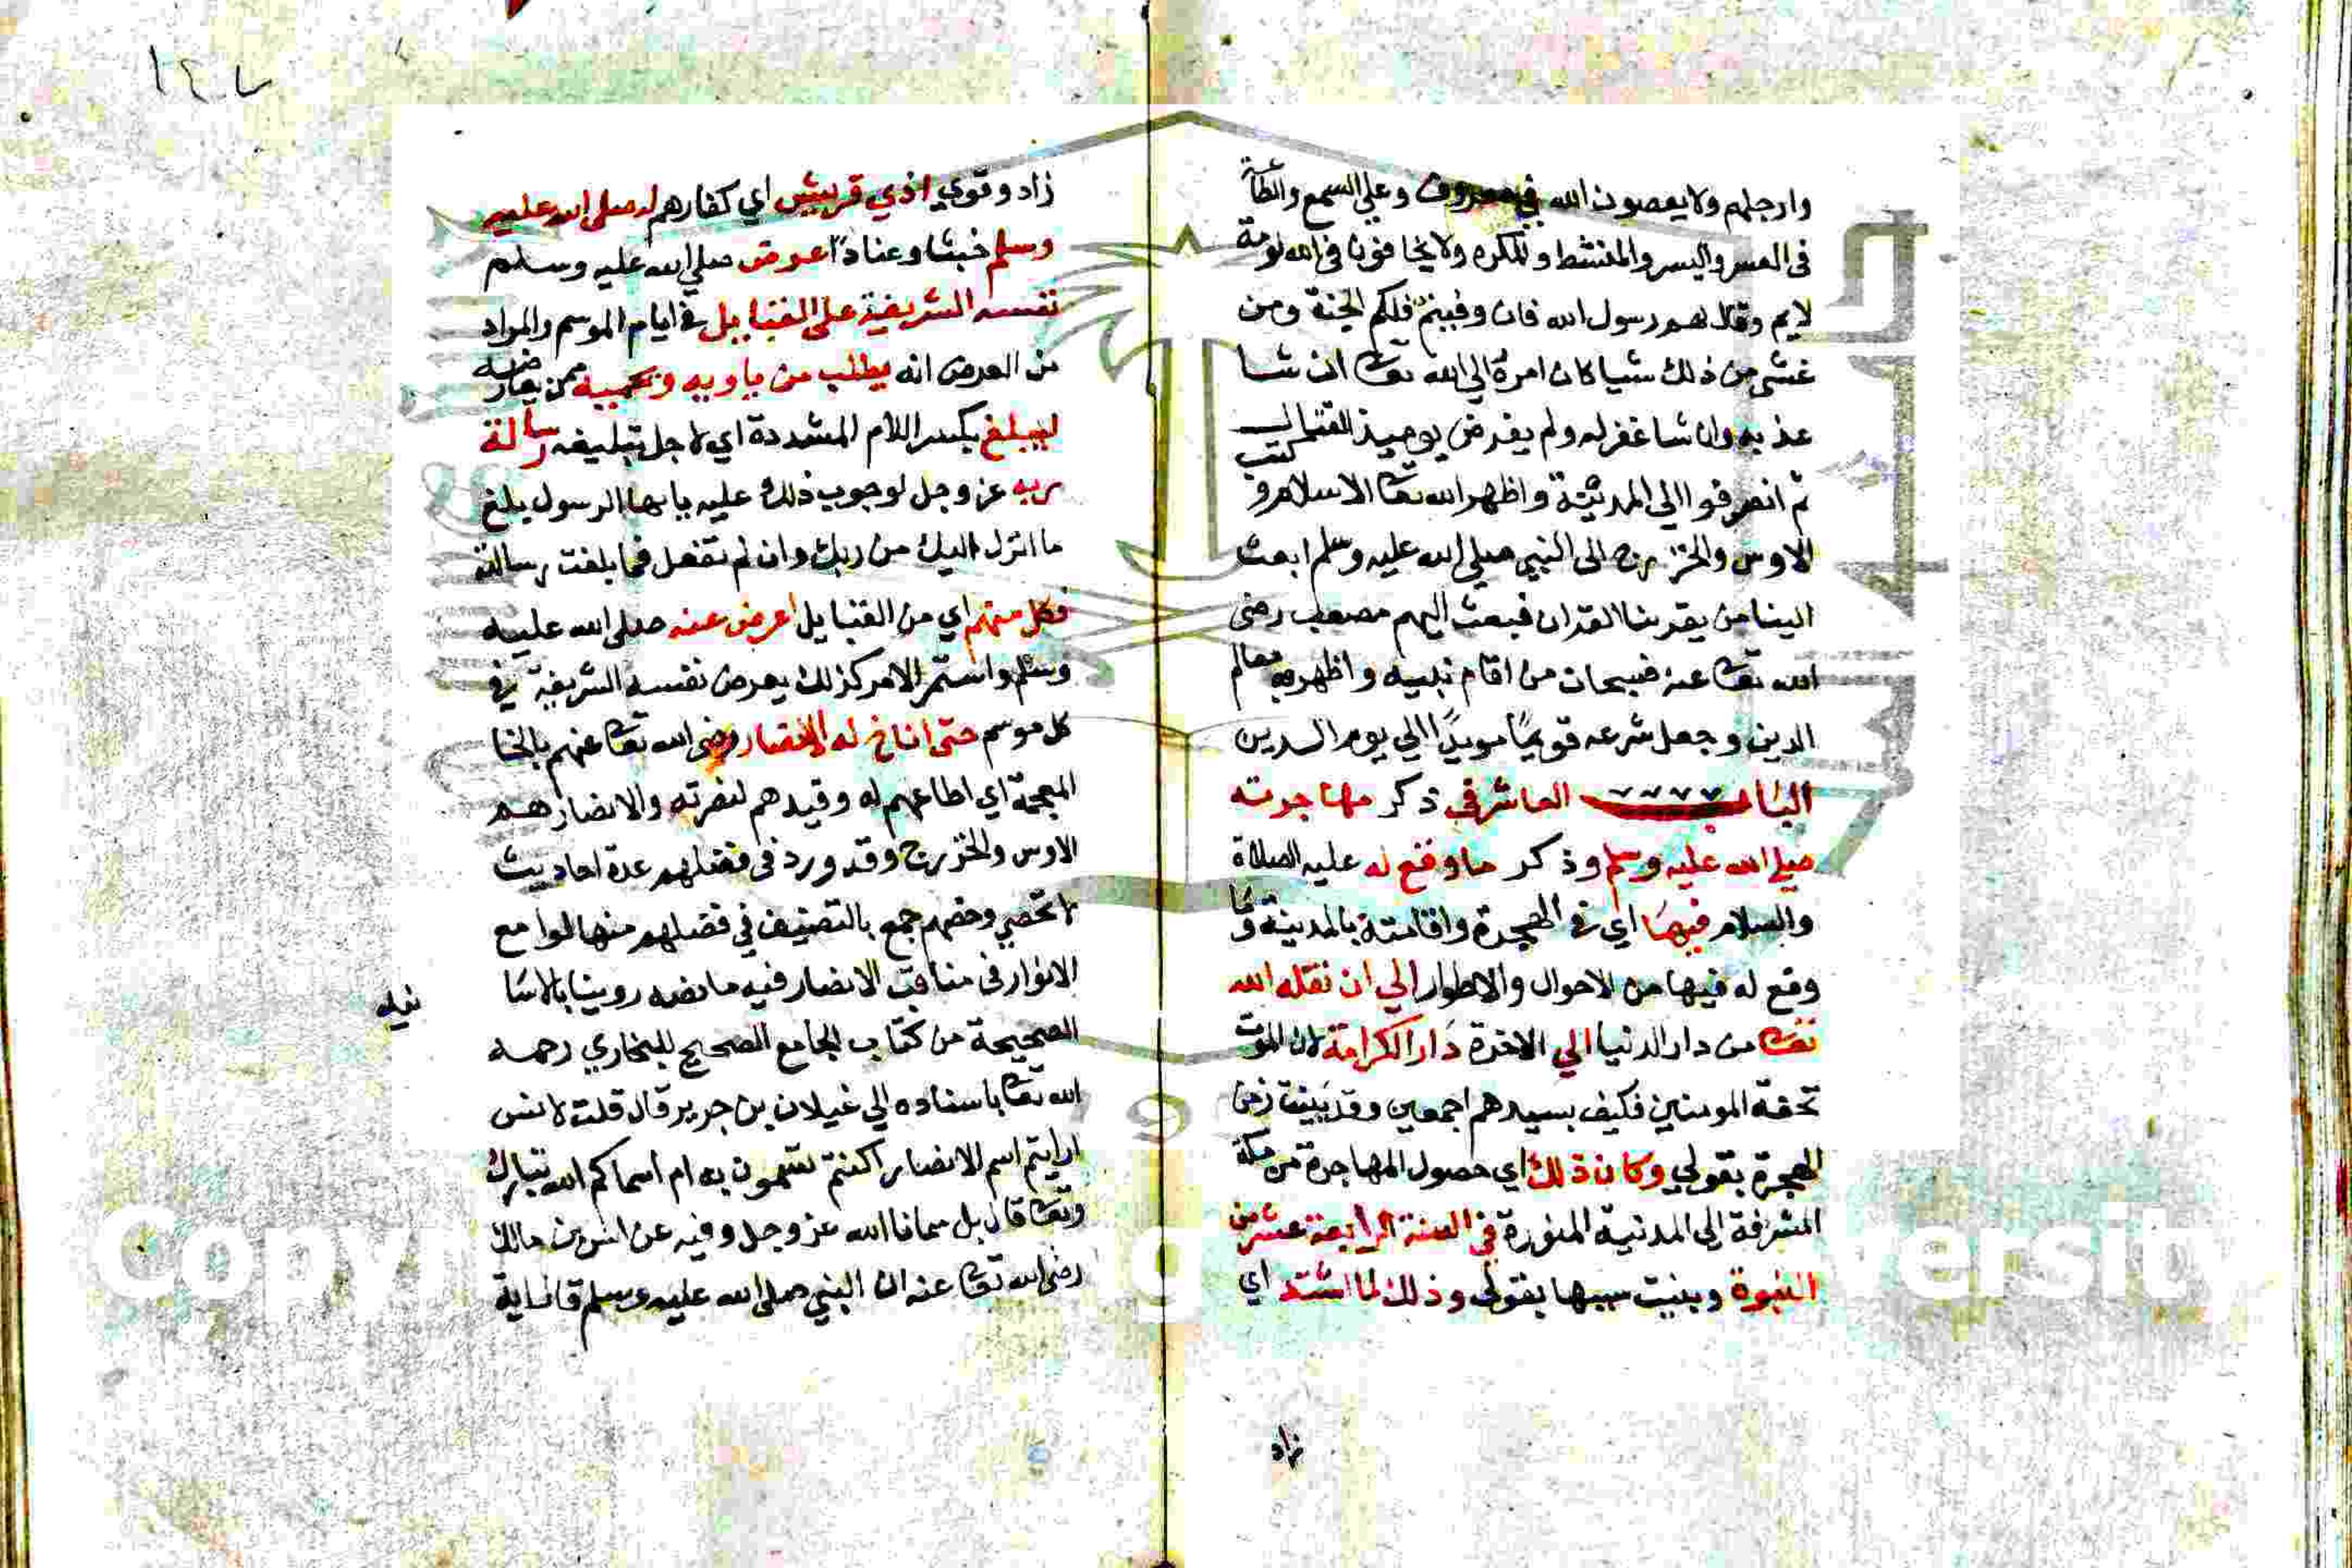 وارجلهم ولا يعصون الله في معروف وعلي السمع والطاعة
في العسر واليسر والمنشط والمكره ولا يخافون في الله لومة
لايم وقال لهم رسول الله فان وفيتم فلكم الجنة ومن
غشي من ذلك شيا كان امره الي الله تعا ان شا
عذبه وان شا غفر له ولم يفرض يوميذ القتال
ثم انصرفوا الي المدينة واظهر الله تعا الاسلام و كتب
الاوس والخزرج الى النبي صلي الله عليه وسلم ابعث
الينا من يقرينا القران فبعث اليهم مصعب رضي
الله تعا عنه فسبحان من اقام نبيه واظهر به معالم
الدين وجعل شرعه قويما مويدا الي يوم الدين
الباب العاشر في ذكر مهاجرته
صلي الله عليه وسلم وذكر ما وقع له عليه الصلاة
والسلام فيها اي في الهجرة واقامته بالمدينة وما
وقع له فيها من الاحوال والاطوار الي ان نقله الله
تعا من دار الدنيا الي الاخرة دار الكرامة لان الموت
تحفة المومنين فكيف بسيدهم اجمعين وقد بينت زمن
الهجرة بقولي وكان ذلك اي حصول المهاجرة من مكة
المشرفة الي المدنية المنورة في السنة الرابعة عشر من
النبوة وبينت سببها بقولي وذلك لما اشتد اي
زاد
١٤٧
زاد وقوي اذي قريش اي كفارهم له صلي الله عليه
وسلم خبثا وعنادا عرض صلي الله عليه وسلم
نفسه الشريفة علي القبايل في ايام الموسم والمراد
من العرض انه يطلب من ياويه ويحميه ممن يعارضه
ليبلغ بكسر اللام المشددة اي لاجل تبليغه رسالة
ربه عز وجل لوجوب ذلك عليه يا ايها الرسول بلغ
ما انزل اليك من ربك وان لم تفعل فما بلغت رسالته
فكل منهم اي من القبايل اعرض عنه صلي الله عليه
وسلم واستمر الامر كذلك يعرض نفسه الشريفة في
كل موسم حتى اناخ له الانصار رضي الله تعا عنهم بالخا
المعجمة اي اطاعهم له وقيدهم لنصرته والانصار هم
الاوس والخزرج وقد ورد في فضلهم عدة احاديث
لا تحصي وخصهم جمع بالتصنيف في فضلهم منها لوامع
الانوار في مناقب الانصار فيه ما نصه روينا بالاسا
نيد
الصحيحة من كتاب الجامع الصحيح للبخاري رحمه
الله تعا باسناده الي غيلان بن جرير قال قلت لانس
ارايتم اسم الانصار اكنتم تسمون به ام اسماكم الله تبارك
وتعا قال بل سمانا الله عز وجل وفيه عن انس بن مالك
رضي الله تعا عنه ان النبي صلى الله عليه وسلم قال اية